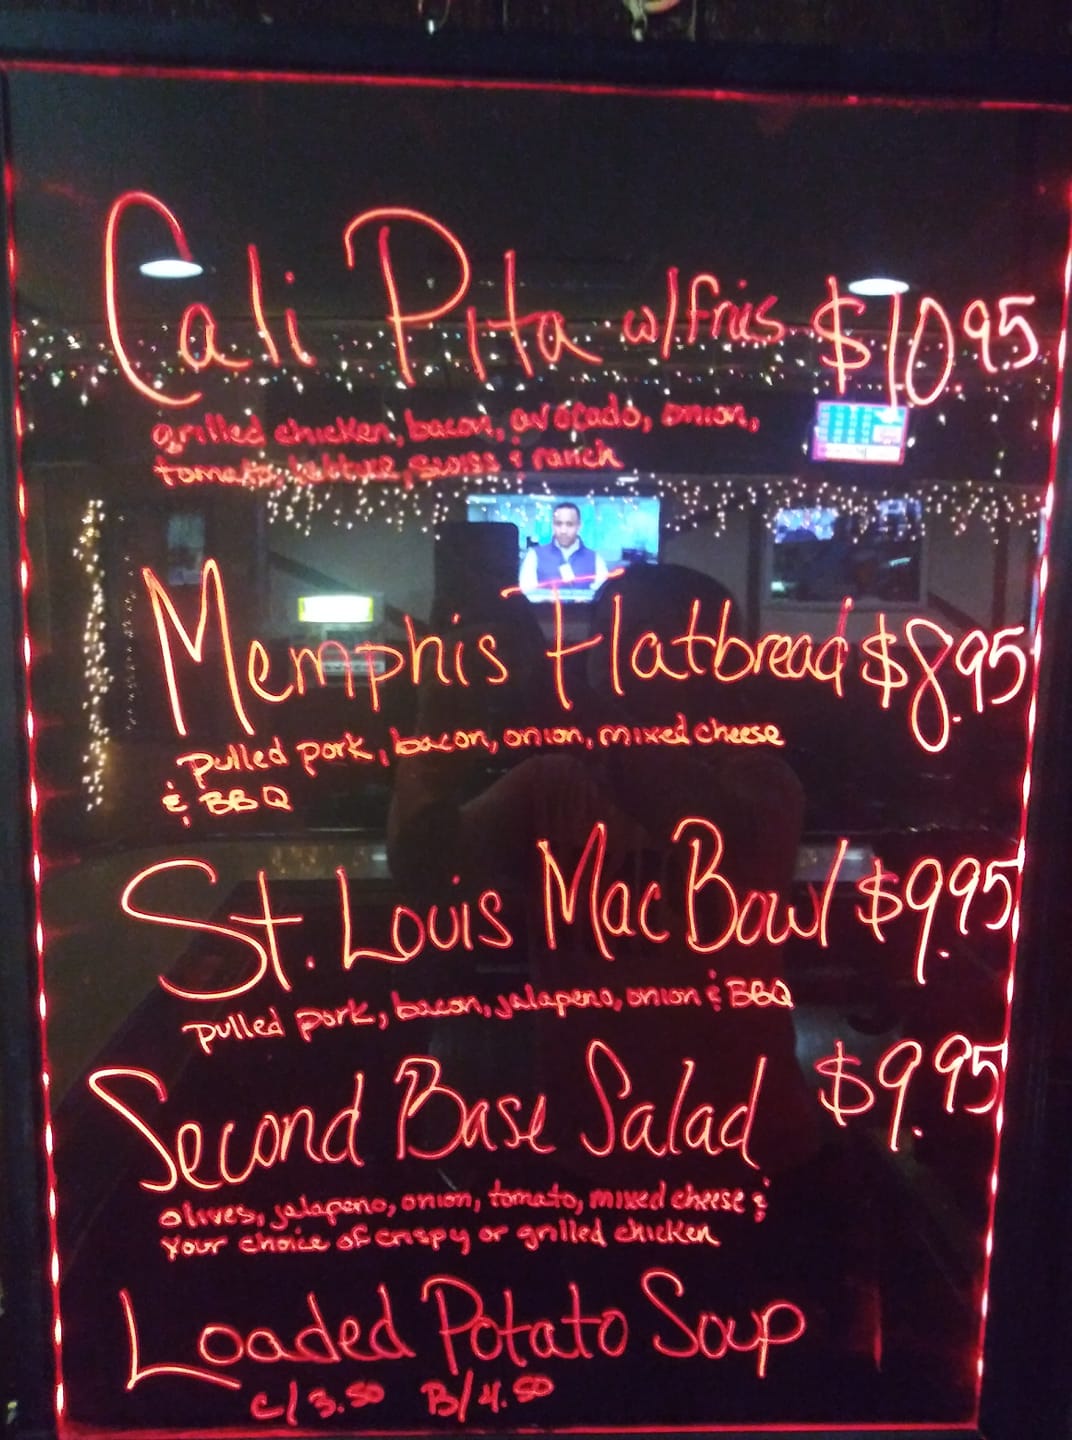 Cali Pita w/fries $10.95
grilled chicken, bacon, avocado, onion,
tomato, lettuce, swiss & ranch
Memphis Flatbread $8.95
pulled pork, bacon, onion, mixed cheese
& BBQ
St. Louis Mac Bowl $9.95
pulled pork, bacon, jalapeno, onion & BBQ
Second Base Salad $9.95
olives, jalapeno, onion, tomato, mixed cheese &
your choice of crispy or grilled chicken
Loaded Potato Soup
C/3.50 B/4.50